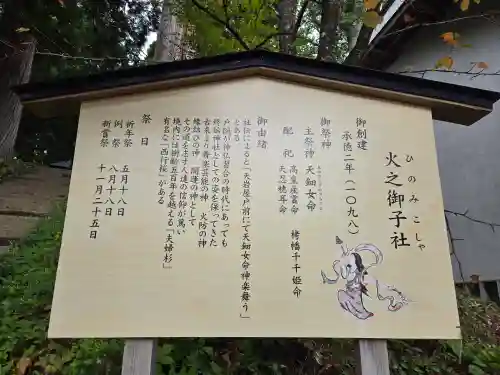 火之御子社
ひのみこしゃ
御創建
承徳二年（一〇九八）
御祭神
主祭神 天鈿女命
配祀 高皇産霊命 栲幡千千姫命
天忍穂耳命
御由緒
社伝によると「天岩屋戸前にて天鈿女命神楽舞う」
とある
戸隠が神仏習合の時代にあっても
終始神社としての姿を保ってきた
古来より舞楽芸能の神 火防の神
縁結びの神 開運の神
その道を志す人達の信仰が篤い
境内には樹齢五百年を越える「夫婦杉」
有名な「西行桜」がある
祭日
祈年祭 五月十八日
例祭 八月十八日
新嘗祭 十一月二十五日